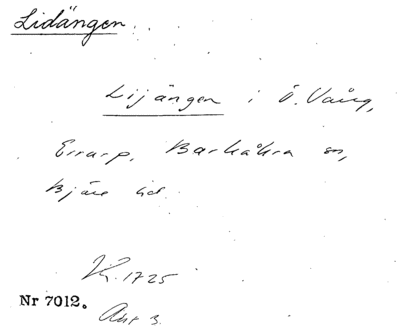 Lidängen
Lijängen i Ö. Vång,
Errarp, Barkåkra sn,
Bjäre hd.
1725
Nr 7012.